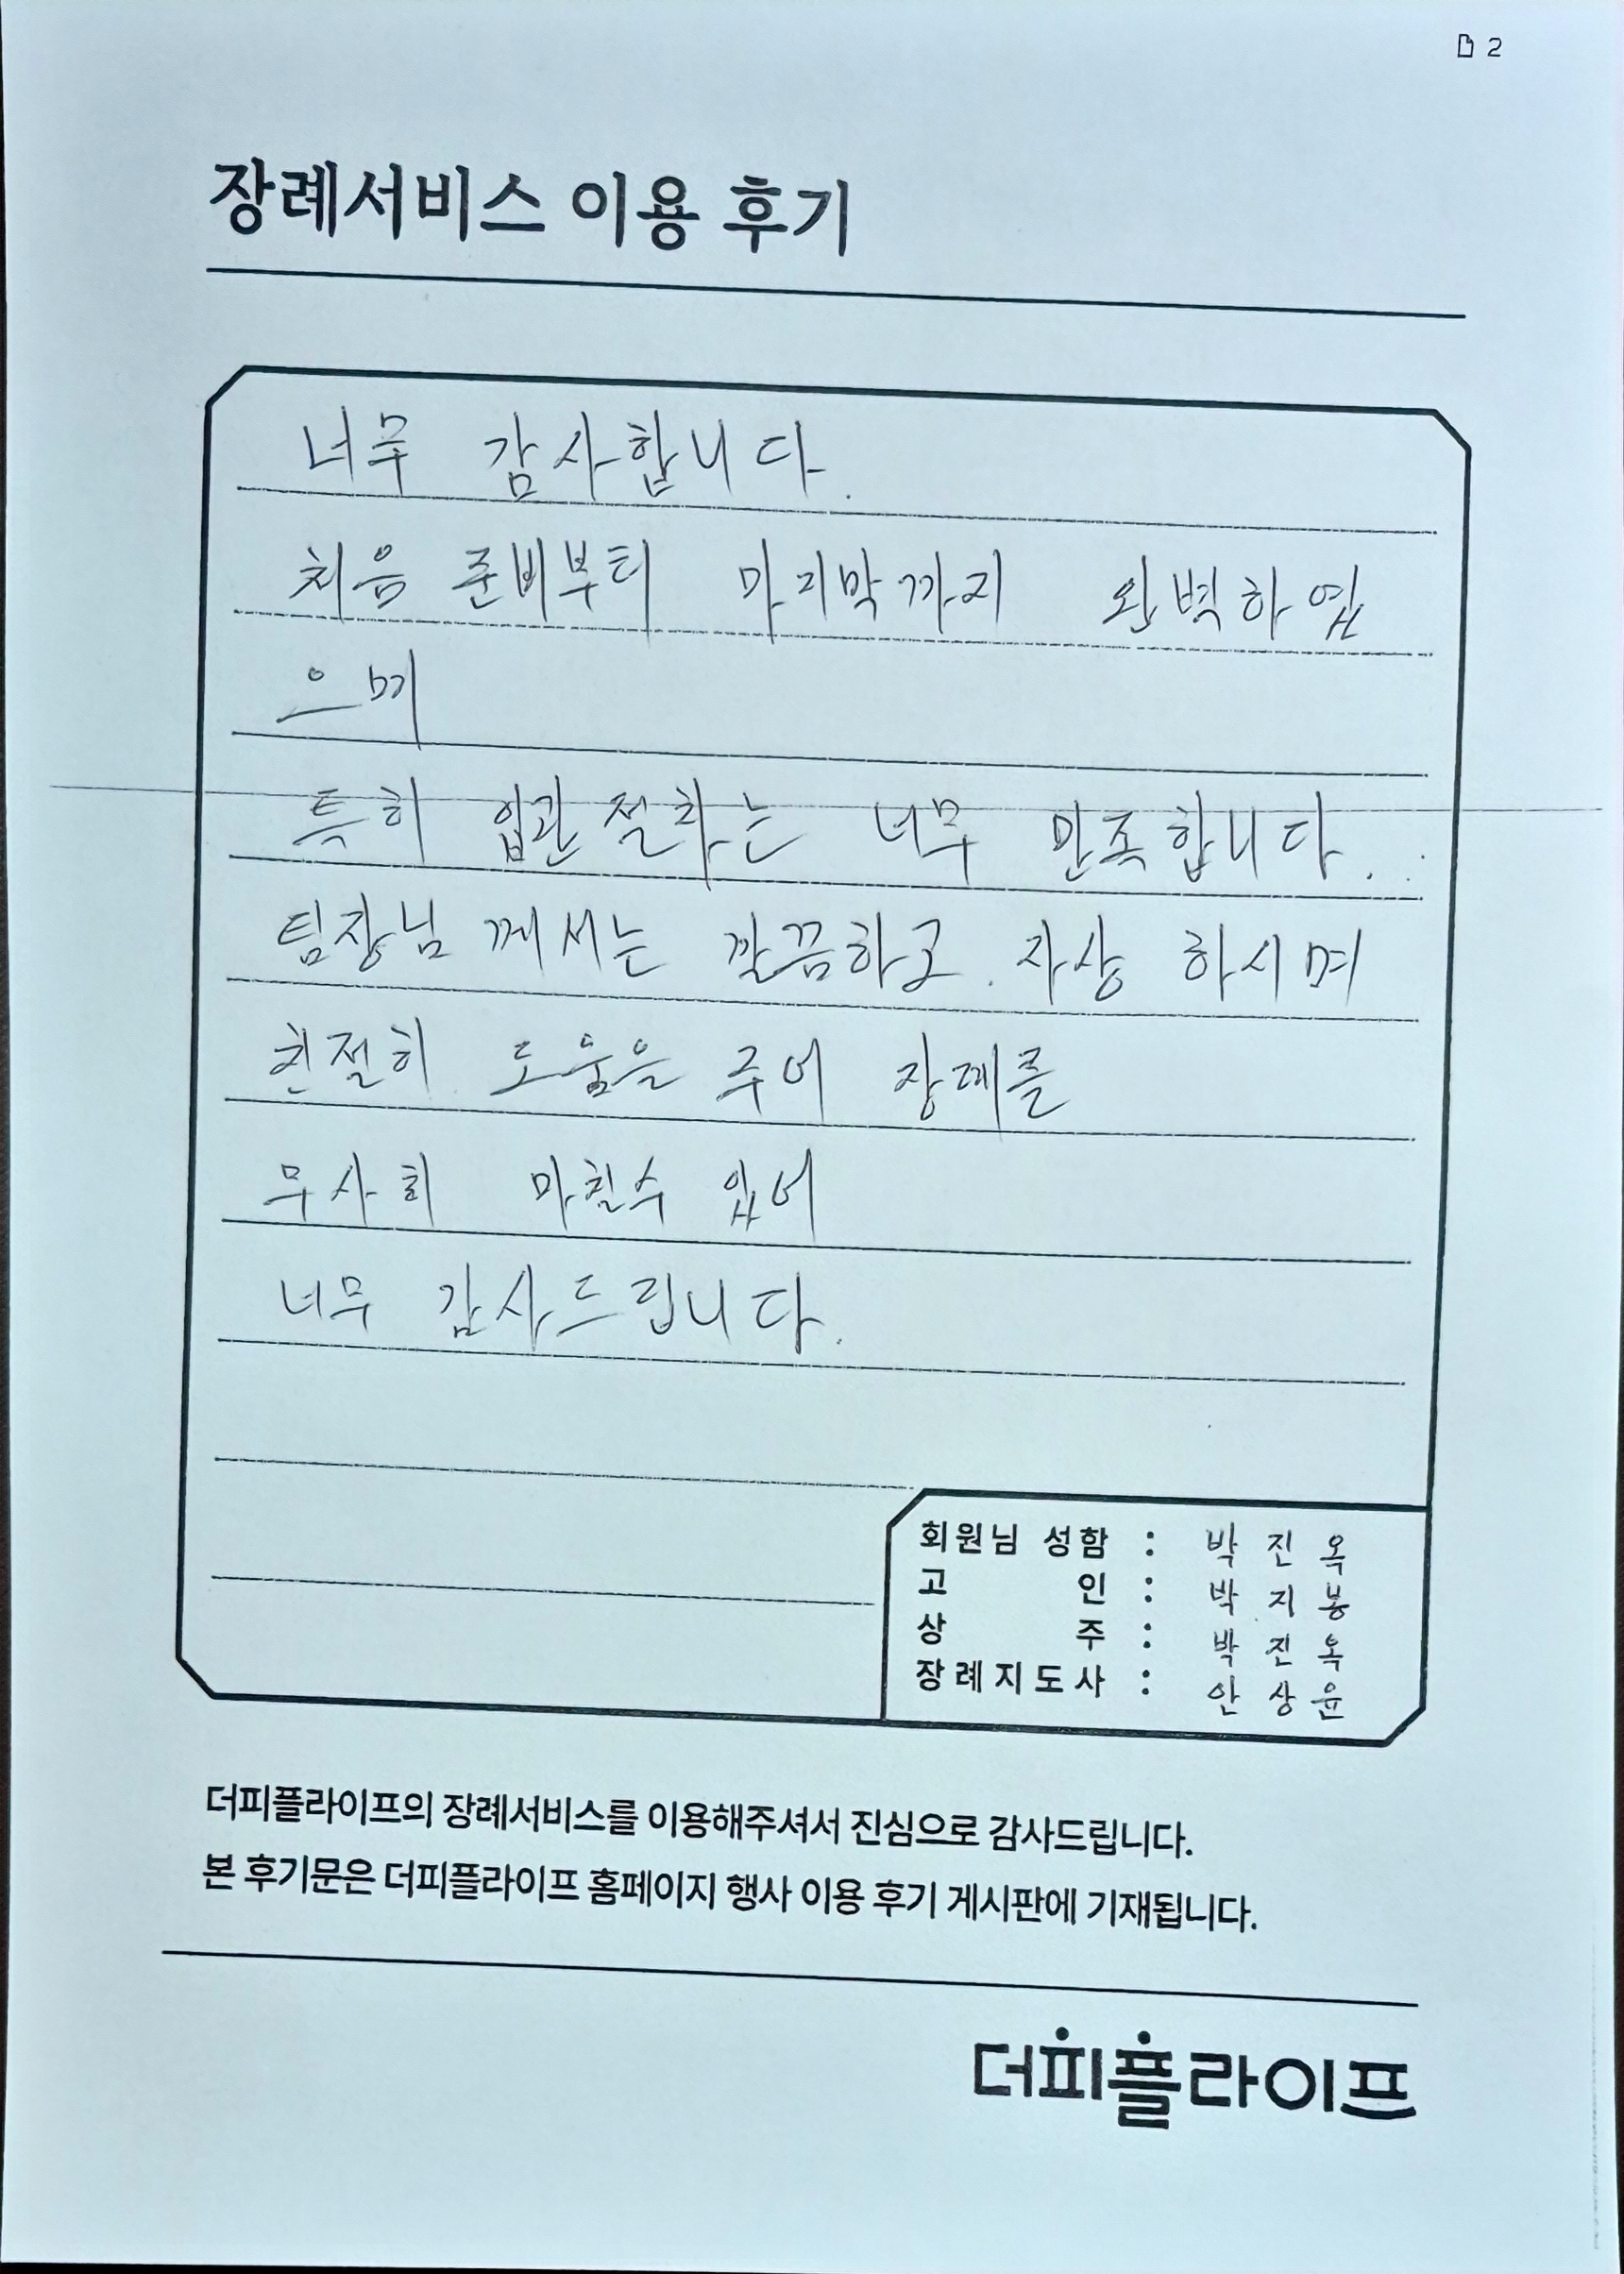 2
장례서비스 이용 후기
너무 감사합니다.
처음 준비부터 마지막까지 완벽하였
으며
특히 입관절차는 너무 만족합니다..
팀장님 께서는 깔끔하고. 자상 하시며
친절히 도움을 주어 장례를
무사히 마칠수 있어
너무 감사드립니다.
회원님 성함 : 박 진 옥
고 인 : 박 지 봉
상 주 : 박 진 옥
장례지도사 : 안 상 윤
더피플라이프의 장례서비스를 이용해주셔서 진심으로 감사드립니다.
본 후기문은 더피플라이프 홈페이지 행사 이용 후기 게시판에 기재됩니다.
더피플라이프